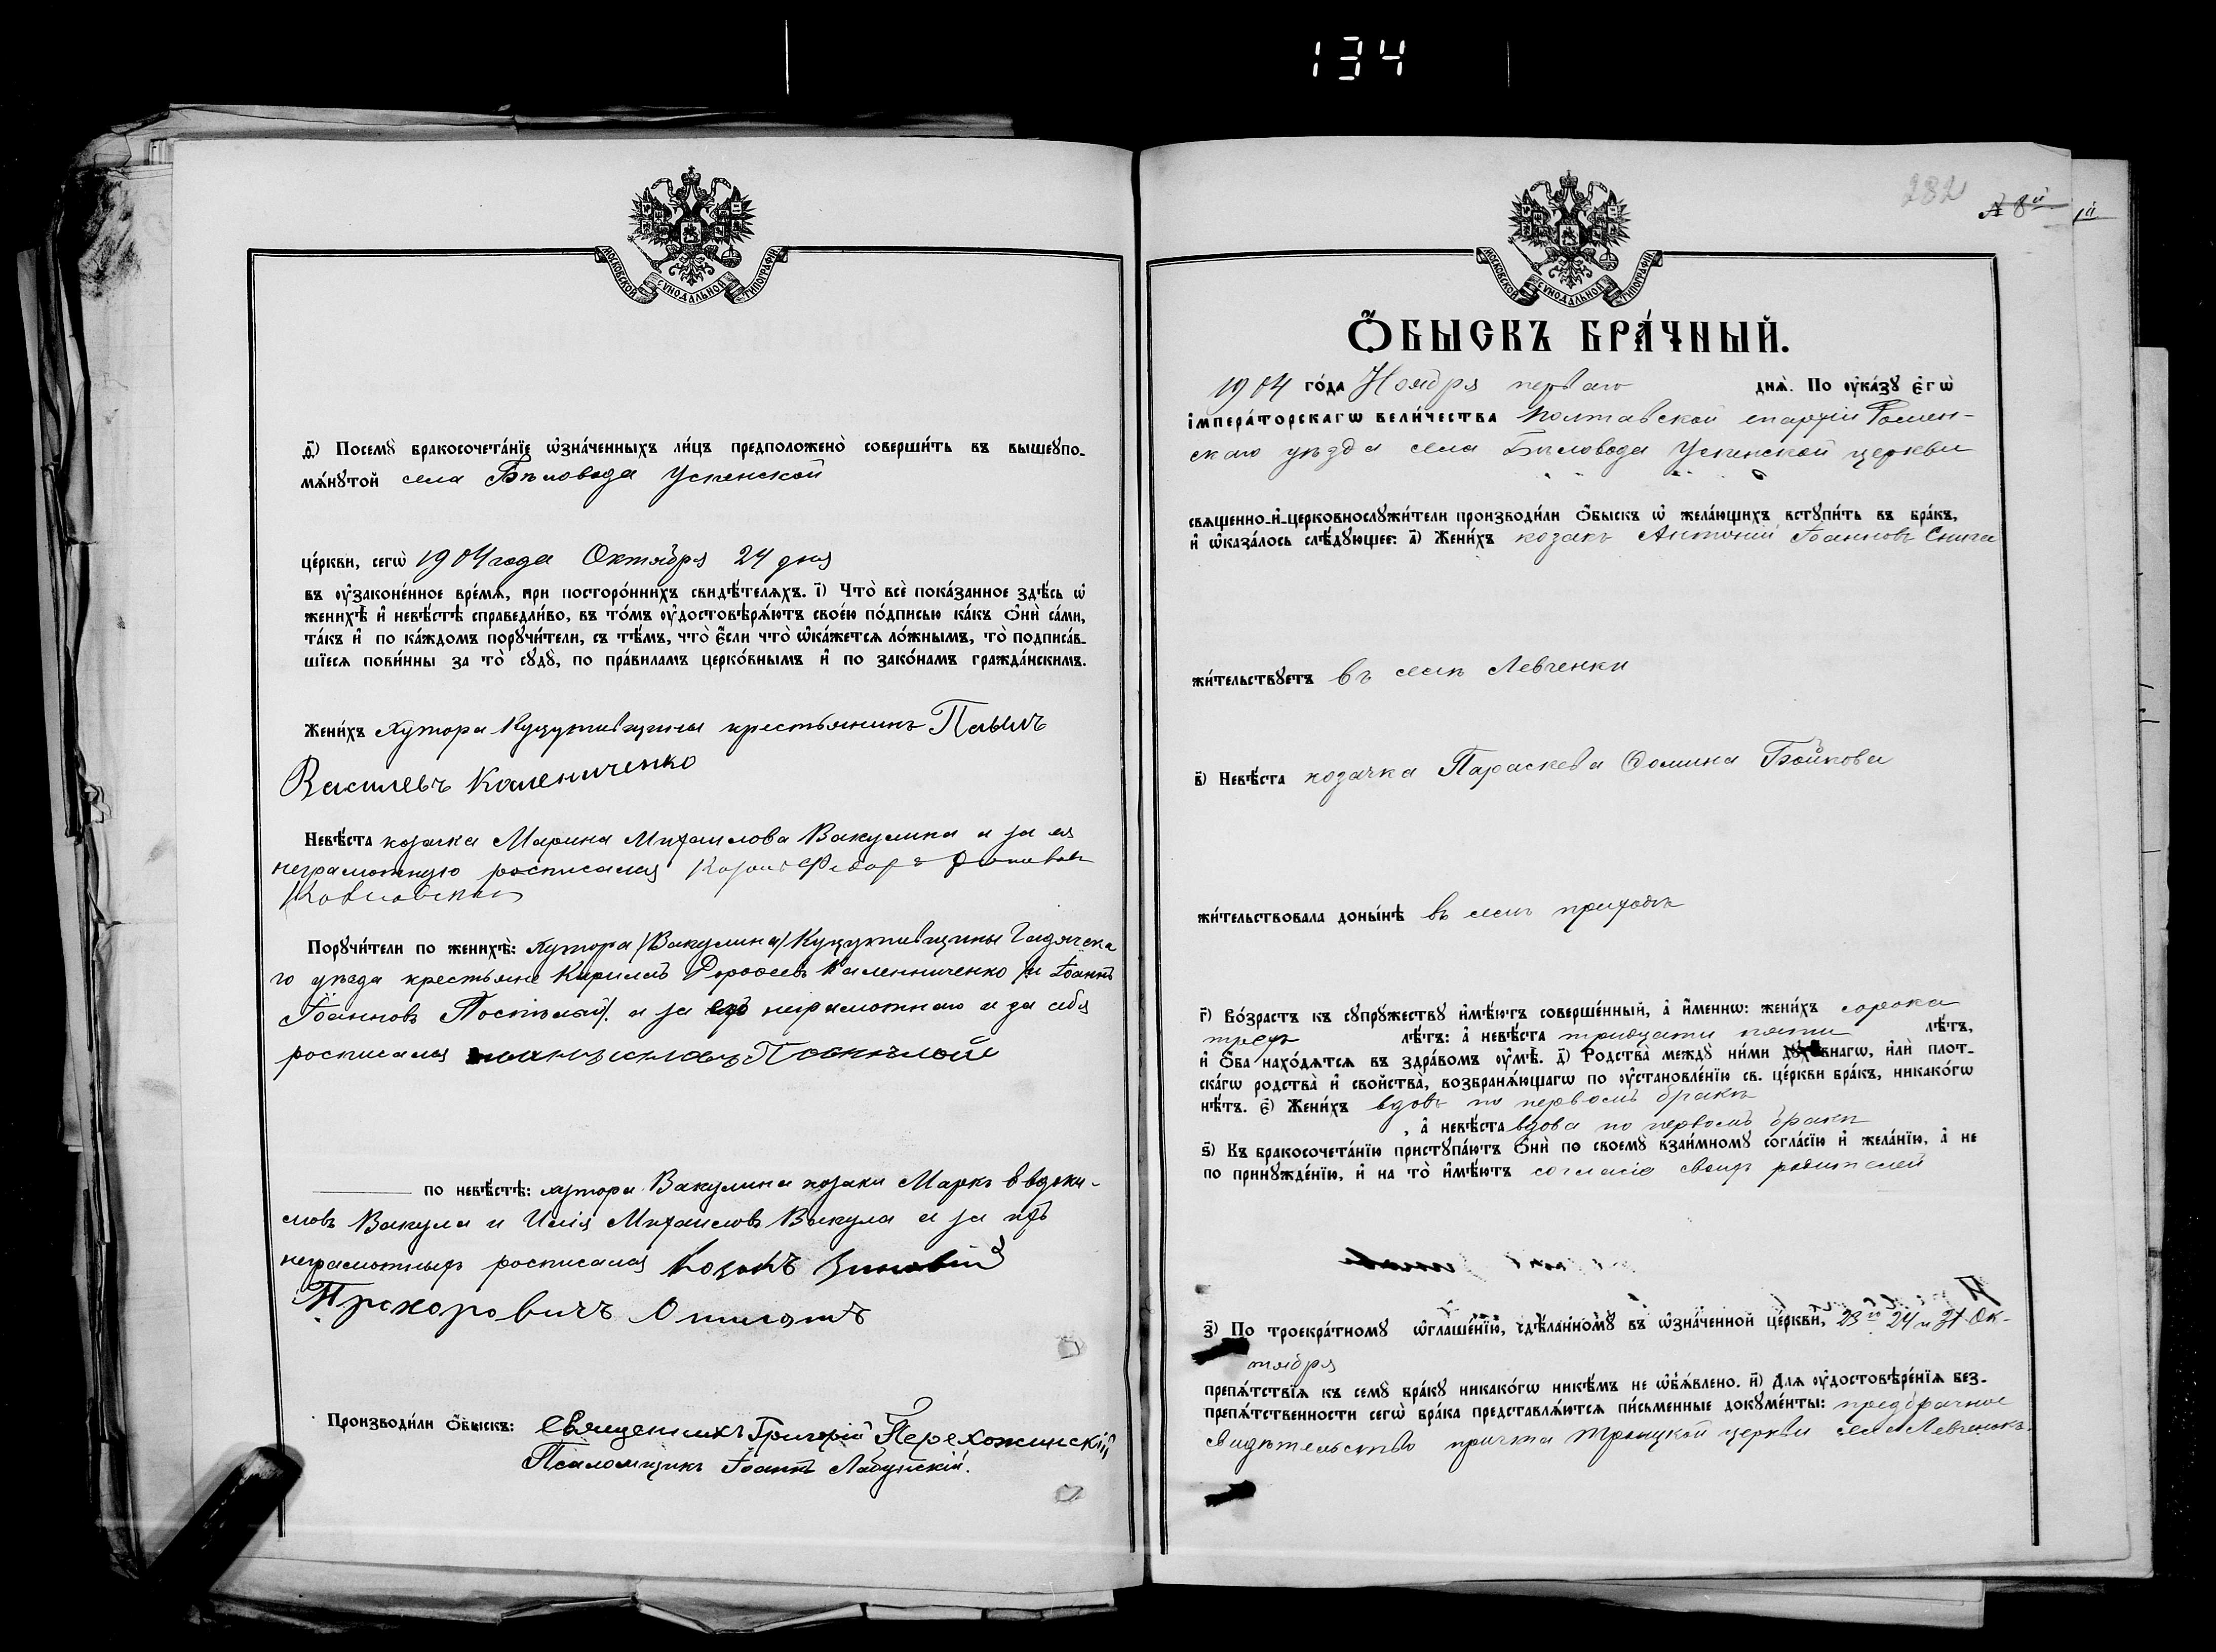 134
МОСКОВСКОЙ СѴНОДАЛЬНОЙ ТИПОГРАФІИ
д҃і) Посемꙋ̀ бракосочета́нїе ѡ҆зна́ченныхъ ли́цъ предположено̀ соверши́ть въ вышеꙋпо-
мѧ́нꙋтой села Бѣловода Успенской
це́ркви, сегѡ̀ 1904 года Октября 24 дня
въ ᲂу҆законе́нное вре́мѧ, при посторо́ннихъ свидѣ́телѧхъ. і҃) Что̀ всѐ пока́занное здѣ́сь ѡ҆
женихѣ̀ и҆ невѣ́стѣ справедли́во, въ то́мъ ᲂу҆достовѣрѧ́ютъ свое́ю по́дписью ка́къ ѻ҆нѝ са́ми,
та́къ и҆ по ка́ждомъ порꙋчи́тели, съ тѣ́мъ, что̀ є҆́сли что̀ ѡ҆ка́жетсѧ ло́жнымъ, то̀ подписа́в-
шїесѧ пови́нны за то̀ сꙋдꙋ̀, по пра́виламъ церко́внымъ и҆ по зако́намъ гражда́нскимъ.
Жени́хъ хутора Куцупивщины крестьянинъ Павелъ
Василевъ Калениченко
Невѣ́ста козачка Марина Михаилова Вакулина а за ея
неграмотную росписался Козакъ Федоръ
Порꙋчи́тели по женихѣ̀: хутора /Вакулина/ Куцупивщины Гадячска
го уѣзда крестьяне Кирилъ Дорофеевъ Калениченко и Іоаннъ
Іоанновъ Постѣлой/. а за его неграмотнаго и за себя
росписался Постѣлой
по невѣ́стѣ: хутора Вакулина козаки Маркъ Евдоки-
мовъ Вакула и Илія Михаиловъ Вакула а за ихъ
неграмотныхъ росписался Козакъ Зиновій
Прохоровичъ
Производи́ли ѻ҆́быскъ: Священникъ Григорій Перехожинскій
Псаломщикъ Іоаннъ Лабунскій.
282
№ 8й 1й
МОСКОВСКОЙ СѴНОДАЛЬНОЙ ТИПОГРАФІИ
Ѻ҆́БЫСКЪ БРА́ЧНЫЙ.
1904 го́да Ноября перваго днѧ̀. По ᲂу҆ка́зꙋ є҆гѡ̀
і҆мпера́торскагѡ вели́чества Полтавской епархіи Ромен-
скаго уѣзда села Бѣловода Успенской церкви
свѧщенно-и҆-церковнослꙋжи́тели производи́ли ѻ҆́быскъ ѡ҆ жела́ющихъ встꙋпи́ть въ бра́къ,
и҆ ѡ҆каза́лось слѣ́дꙋющее: а҃) Жени́хъ козакъ Антоній Іоанновъ Снига
жи́тельствꙋетъ въ селѣ Левченки
в҃) Невѣ́ста козачка Параскева Фомина Бойкова
жи́тельствовала доны́нѣ въ семъ приходѣ
г҃) Во́зрастъ къ сꙋпрꙋ́жествꙋ и҆мѣ́ютъ соверше́нный, а҆ и҆́меннѡ: жени́хъ сорока
трехъ лѣ́тъ: а҆ невѣ́ста тридцати пяти лѣ́тъ,
и҆ ѻ҆́ба нахо́дѧтсѧ въ здра́вомъ ᲂу҆мѣ̀. д҃) Родства̀ междꙋ̀ ни́ми дꙋхо́внагѡ, и҆лѝ плот-
ска́гѡ родства̀ и҆ свойства̀, возбранѧ́ющагѡ по ᲂу҆становле́нїю св. це́ркви бра́къ, никако́гѡ
нѣ́тъ. є҃) Жени́хъ вдовъ по первомъ бракѣ
, а҆ невѣ́ста вдова по первомъ бракѣ
ѕ҃) Къ бракосочета́нїю пристꙋпа́ютъ ѻ҆нѝ по своемꙋ̀ взаи́мномꙋ согла́сїю и҆ жела́нїю, а҆ не
по принꙋжде́нїю, и҆ на то̀ и҆мѣ́ютъ согласіе своихъ родителей
з҃) По троекра́тномꙋ ѡ҆глаше́нїю, сдѣ́ланномꙋ въ ѡ҆зна́ченной це́ркви, 23го 24 и 31 Ок-
тября
препѧ́тствїѧ къ семꙋ̀ бра́кꙋ никако́гѡ никѣ́мъ не ѡ҆б̾ѧ́влено. и҃) Длѧ ᲂу҆достовѣре́нїѧ без-
препѧ́тственности сегѡ̀ бра́ка представлѧ́ютсѧ пи́сьменные докꙋме́нты: предбрачное
свидѣтельство причта Троицкой церкви села Левченокъ.